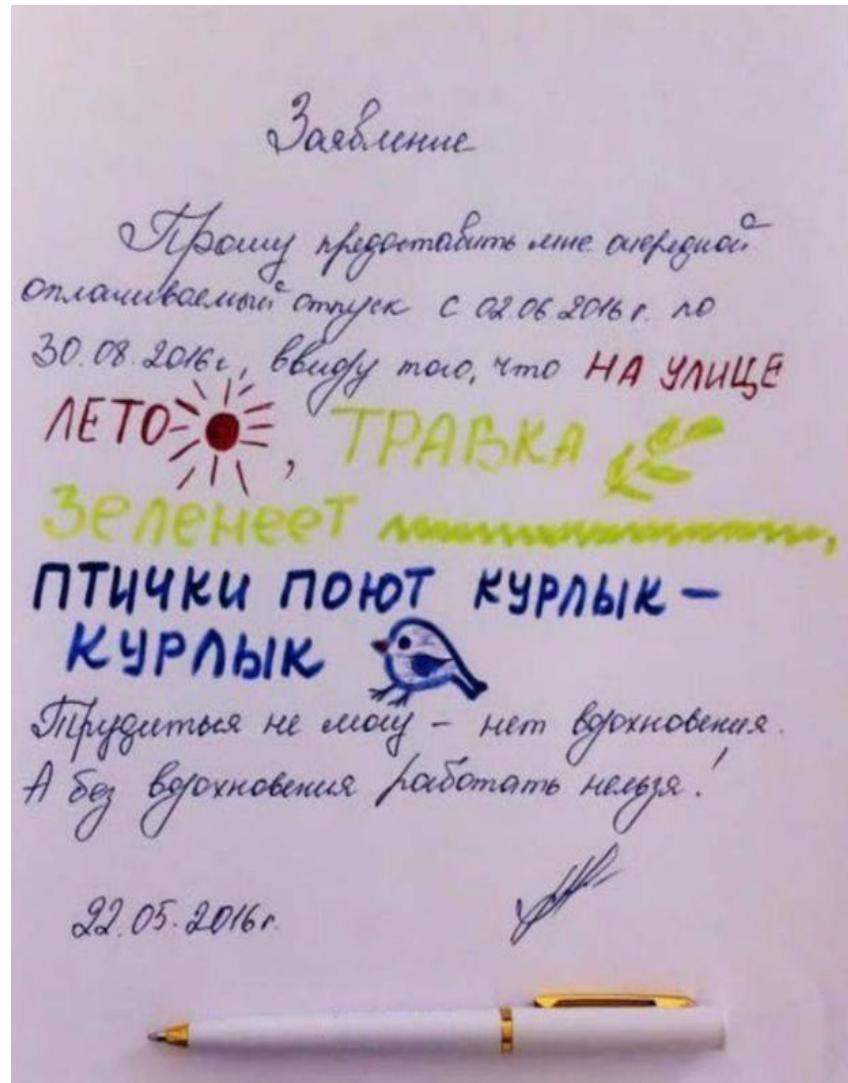 Заявление
Прошу предоставить мне очередной
оплачиваемый отпуск с 02.06.2016 г. по
30.08.2016г, ввиду того, что НА УЛИЦЕ
ЛЕТО, ТРАВКА
Зеленеет,
ПТИЧКИ ПОЮТ КУРЛЫК –
КУРЛЫК
Трудиться не могу – нет вдохновения.
А без вдохновения работать нельзя!
22.05.2016г.